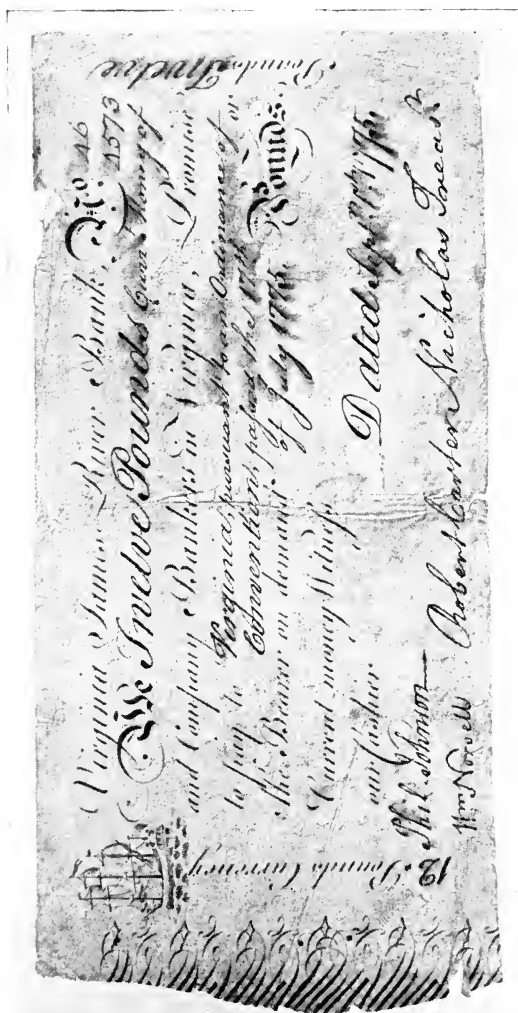 Virginia James River Bank, No. 46
We Twelve Pounds Curr. Money of 1573
and Company Bankers in Virginia, Promise
to pay to Virginia, pursuant to an Ordinance of or
Convention, passed the 17th
the Bearer on demand, of July 1775 Pounds.
Current money Witness,
our Cashier Dated Sept. 1775
Phil. Johnson
Wm Norvell Robert Carter Nicholas Treasr
12. Pounds Currency
Pounds Twelve